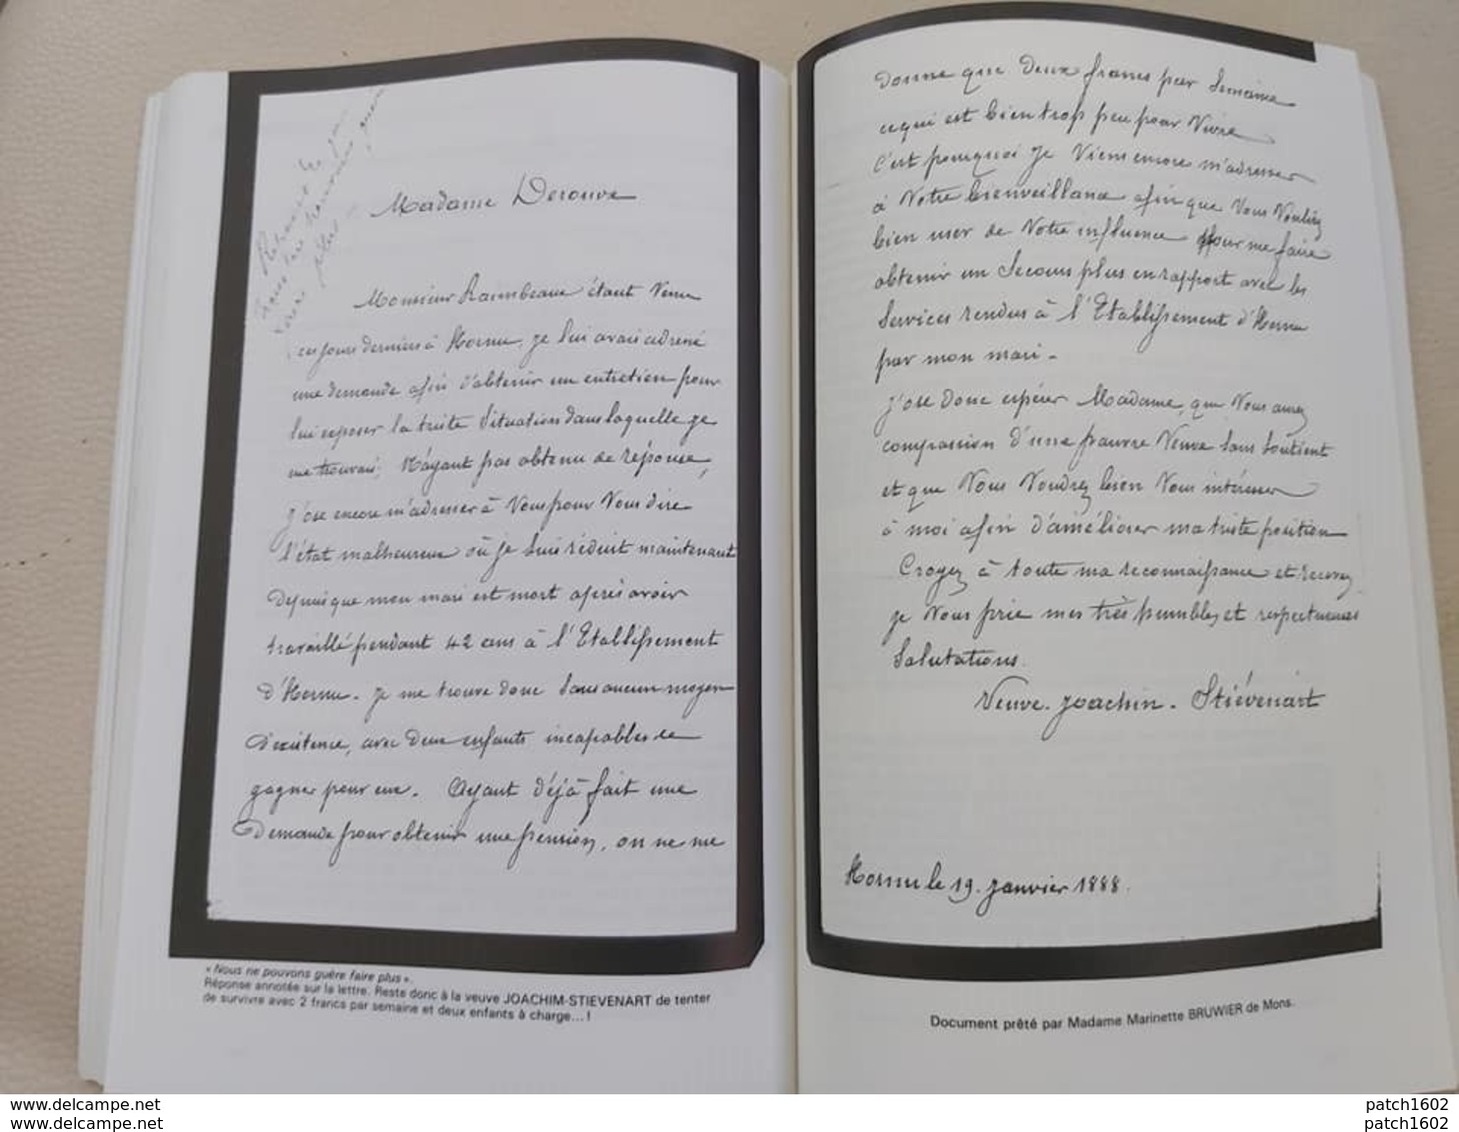 Madame Derouve
Monsieur Raimbeaux étant Venu
ces jours derniers à Hornu, je lui avais adressé
une demande afin d'obtenir un entretien pour
lui exposer la triste Situation dans laquelle je
me trouvais. N'ayant pas obtenu de réponse,
j'ose encore m'adresser à Vous pour Vous dire
l'état malheureux où je Suis réduit maintenant
Depuis que mon mari est mort après avoir
travaillé pendant 42 ans à l'Etablissement
d'Hornu. Je me trouve donc Sans aucun moyen
D'existence, avec Deux enfants incapables de
gagner pour eux. Ayant Déjà fait une
Demande pour obtenir une pension, on ne me
« Nous ne pouvons guère faire plus ».
Réponse annotée sur la lettre. Reste donc à la veuve JOACHIM-STIEVENART de tenter
de survivre avec 2 francs par semaine et deux enfants à charge... !
Donne que Deux francs par Semaine
ce qui est bien trop peu pour Vivre
C'est pourquoi Je Viens encore m'adresser
à Votre bienveillance afin que Vous Vouliez
bien user de Votre influence Pour me faire
obtenir un Secours plus en rapport avec les
Services rendus à l'Etablissement d'Hornu
par mon mari -
J'ose Donc espérer Madame, que Vous aurez
compassion d'une pauvre Veuve Sans Soutient
et que Vous Voudrez bien Vous intéresser
à moi afin d'améliorer ma triste position
Croyez à toute ma reconnaissance et recevez
je Vous prie mes très humbles et respectueuses
Salutations.
Veuve. Joachin - Stiévenart
Hornu le 19. Janvier 1888.
Document prêté par Madame Marinette BRUWIER de Mons.
www.delcampe.net
www.delcampe.net
patch1602
patch1602